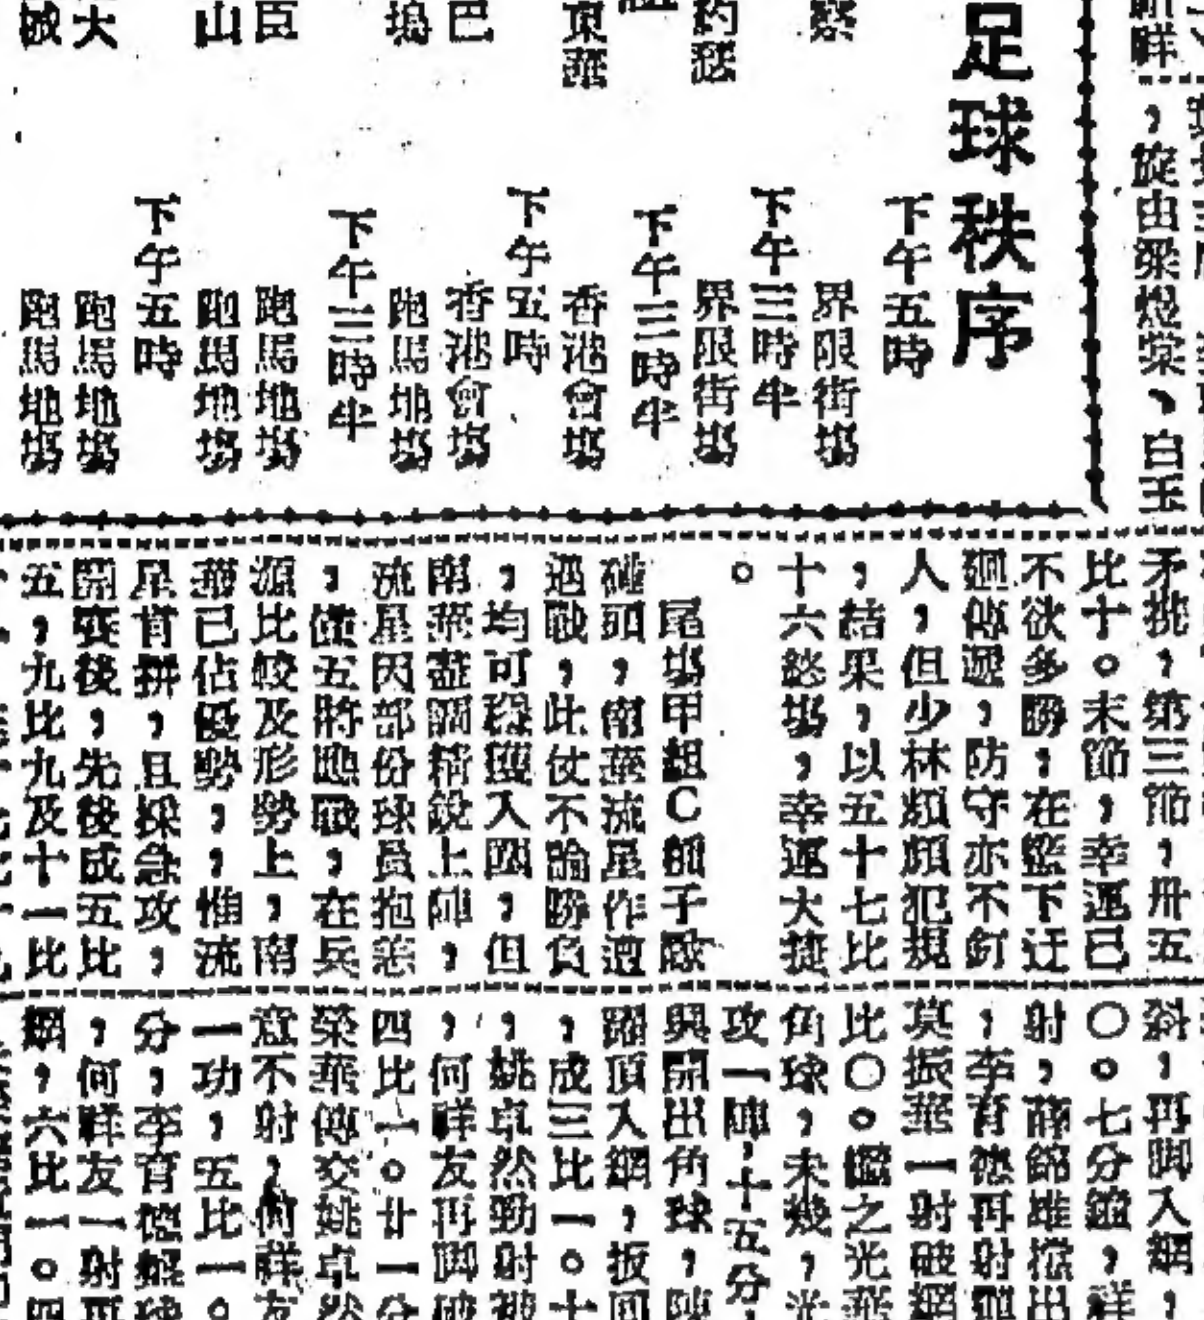 足球秩序
下午五時
界限街塲
下午三時半
界限街塲
下午三時半
東華
香港會塲
下午五時
巴
香港會塲
塢
跑馬地塲
下午三時半
臣
跑馬地塲
山
跑馬地塲
下午五時
大
跑馬地塲
跑馬地塲
，旋由梁煜棠、白玉
矛挑，第三節，卅五
比十。末節，幸運已
不欲多勝，在籃下迂
迴傳遞，防守亦不釘
人，但少林頻頻犯規
，結果，以五十七比
十六懸塲，幸運大捷
。
尾塲甲組C細子隊
碰頭，南華流星作遭
遇戰，此仗不論勝負
，均可穩獲入四，但
南華盡關精銳上陣，
流星因部份球員抱恙
，僅五將應戰，在兵
源比較及形勢上，南
華已佔優勢，，惟流
星肯拼，且採急攻，
開賽後，先後成五比
五，九比九及十一比
斜，再脚入網，
〇。七分鐘，祥
射，薛錦雄擋出
，李育德再射
莫振華一射破網
比〇。繼之光華
角球，未幾，光
攻一陣，十五分，
與開出角球，陳
躍頂入網，扳回
，成三比一。十
，姚卓然勁射被
，何祥友再脚破
四比一。廿一分
榮華傳交姚卓然
意不射，何祥友
一功，五比一。
分，李育德
，何祥友一射再
網，六比一。四